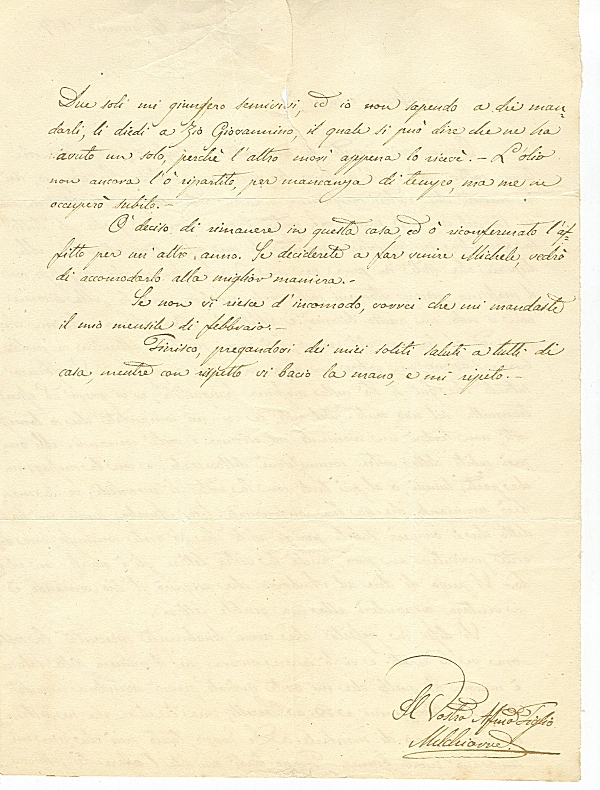 Due soli mi giunsero semivivi, ed io non sapendo a chi man-
darli, li diedi a Zio Giovannino, il quale si può dire che ne ha
avuto un solo, perchè l'altro morì appena lo ricevè. - L'olio
non ancora l'ò ripartito, per mancanza di tempo, ma me ne
occuperò subito. -
Ò deciso di rimanere in questa casa, ed ò riconfermato l'af-
fitto per un'altro anno. Se deciderete a far venire Michele, vedrò
di accomodarlo alla miglior maniera. -
Se non vi riesce d'incomodo, vorrei che mi mandaste
il mio mensile di febbraio. -
Finisco, pregandovi dei miei soliti saluti a tutti di
casa, mentre con rispetto vi bacio la mano, e mi ripeto. -
Il Vostro Affmo Figlio
Melchiorre